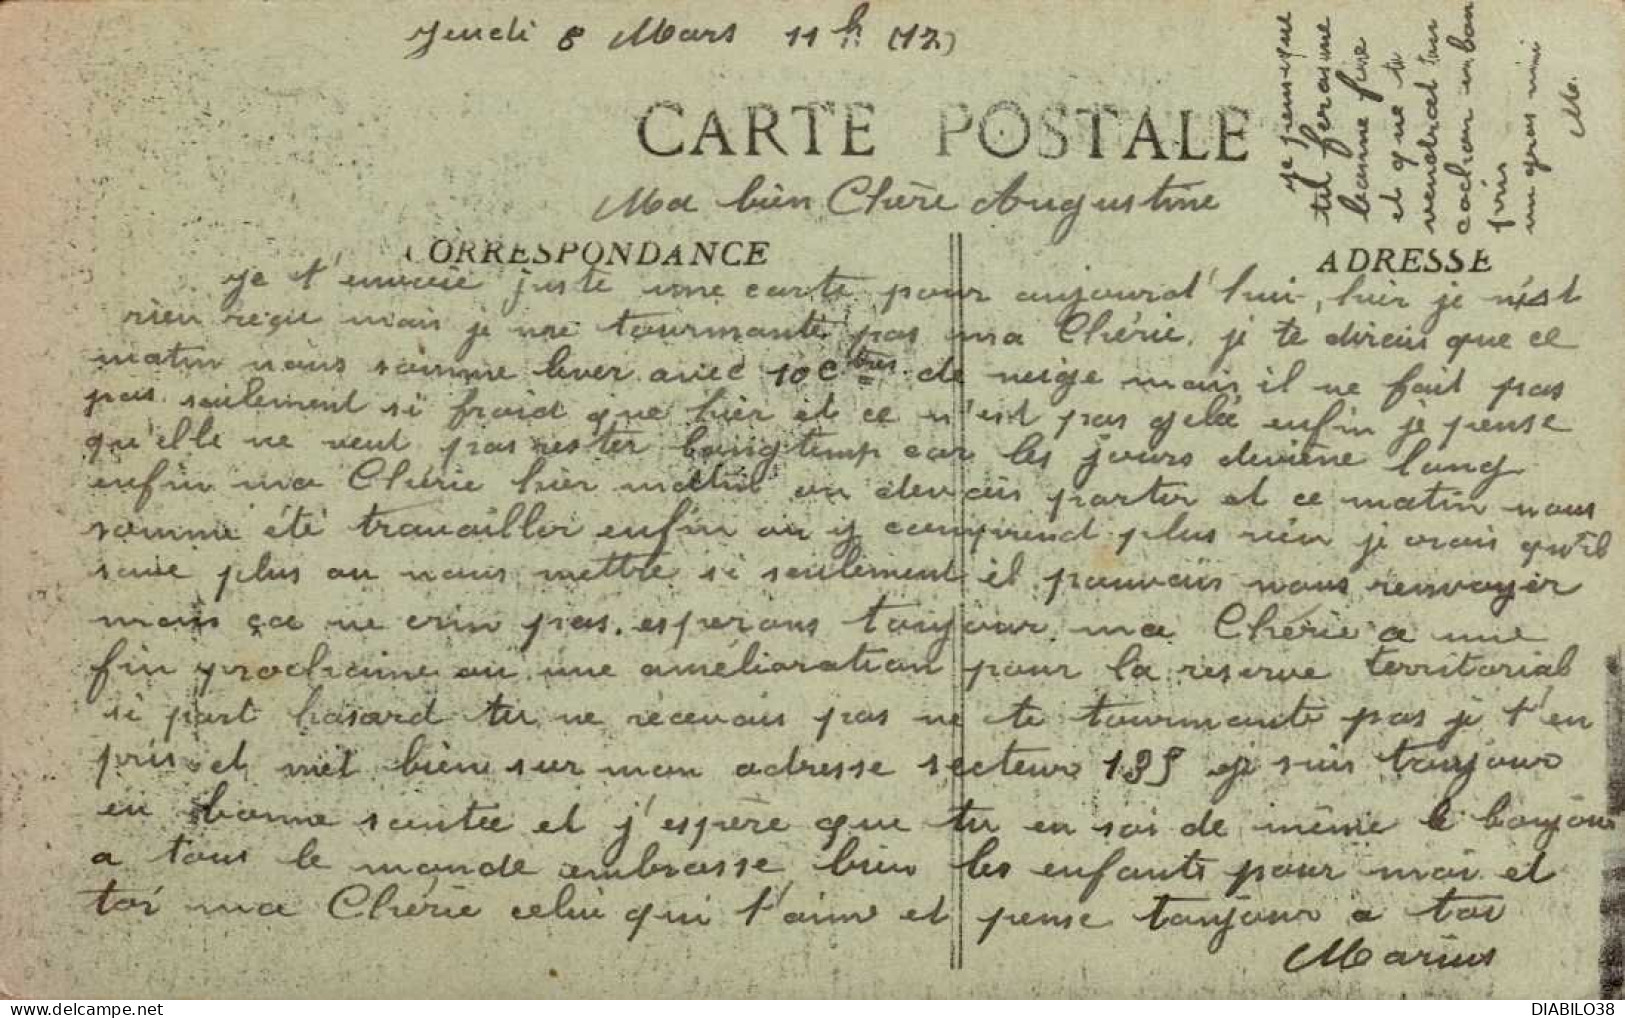 Jeudi 8 Mars 11h (17)
CARTE POSTALE
Ma bien Chère Augustine
CORRESPONDANCE
ADRESSE
je t'envoie juste une carte pour aujourd'hui, hier je n'est
rien reçu mais je me tourmante pas ma Chérie. je te dirais que ce
matin nous somme lever avec 10 c tres de neige mais il ne fait pas
pas seulement si froid que hier et ce n'est pas gelé enfin je pense
qu'elle ne veut pas rester longtemp car les jours deviène long
enfin ma Chérie hier matin on devais partir et ce matin nous
somme été travailler enfin on y comprend plus rien je crois qu'il
save plus ou nous mettre si seulement il pouvais nous renvoyer
mais ça ne crin pas. esperons toujour ma Chérie a une
fin prochaine ou une amélioration pour la reserve territorial
si part hasard tu ne recevais pas ne te tourmante pas je t'en
pris et met bien sur mon adresse secteur 195 je suis toujour
en bonne santée et j'espère que tu en soi de même le bonjour
a tous le monde embrasse bien les enfants pour moi et
toi ma Chérie celui qui t'aime et pense toujour a toi
Marius
je pense que
tu feras une
bonne fire
et que tu
vendrat ton
cochon en bon
prix
un gros mimi
M.
DIABILO38